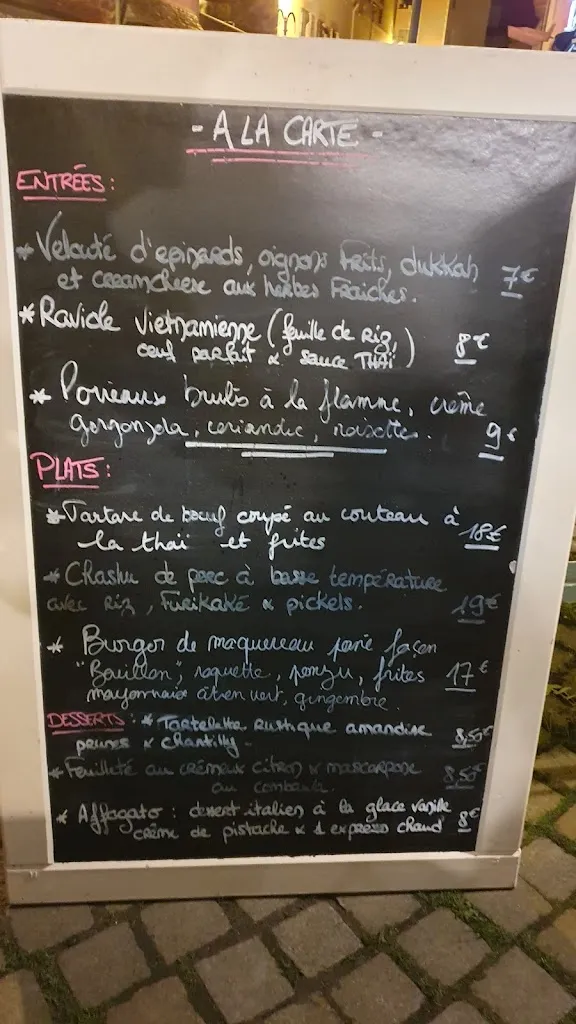 - A LA CARTE -
ENTRÉES :
* Velouté d'epinards, oignons frits, dukkah 7€
et creamcheese aux herbes fraiches.
* Raviole Vietnamienne (feuille de Riz, 8€
oeuf parfait & sauce THAÏ)
* Poireaux brulés à la flamme, crème
gorgonzola, coriandre, noisettes. 9€
PLATS :
* Tartare de boeuf coupé au couteau à 18€
la thaï et frites
* Chashu de porc à basse température
avec Riz, Furikaké & pickels. 19€
* Burger de maquereau pané façon
"Bouillon", roquette, ponzu, frites 17€
mayonnaise citron vert, gingembre.
DESSERTS : * Tartelette Rustique amandine 8,50€
prunes & chantilly -
* Feuilleté au crémeux citron & mascarpone 8,50€
au combawa.
* Affogato : dessert italien à la glace vanille 8€
crème de pistache & 1 expresso chaud